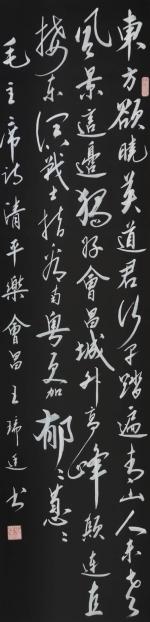 東方欲曉莫道君行早踏遍青山人未老
風景這邊獨好會昌城外高峰顛連直
接東溟戰士指看南粵更加郁〻蔥〻
毛主席詩清平樂會昌王瑞廷书